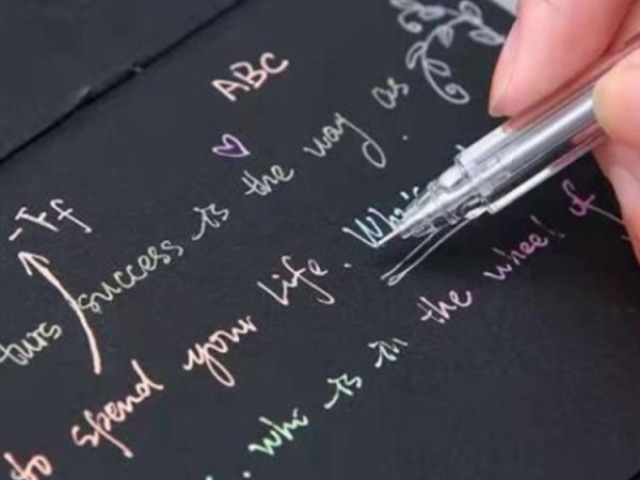 ABC
-If
this success is the way as
to spend your life. Who's
. who is in the wheel of